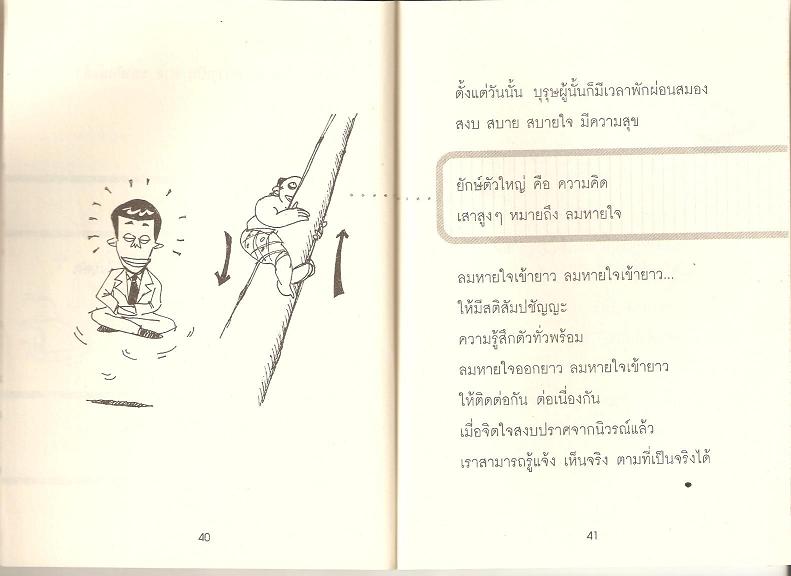 ตั้งแต่วันนั้น บุรุษผู้นั้นก็มีเวลาพักผ่อนสมอง
สงบ สบาย สบายใจ มีความสุข
ยักษ์ตัวใหญ่ คือ ความคิด
เสาสูงๆ หมายถึง ลมหายใจ
ลมหายใจเข้ายาว ลมหายใจเข้ายาว...
ให้มีสติสัมปชัญญะ
ความรู้สึกตัวทั่วพร้อม
ลมหายใจออกยาว ลมหายใจเข้ายาว
ให้ติดต่อกัน ต่อเนื่องกัน
เมื่อจิตใจสงบปราศจากนิวรณ์แล้ว
เราสามารถรู้แจ้ง เห็นจริง ตามที่เป็นจริงได้
40
41